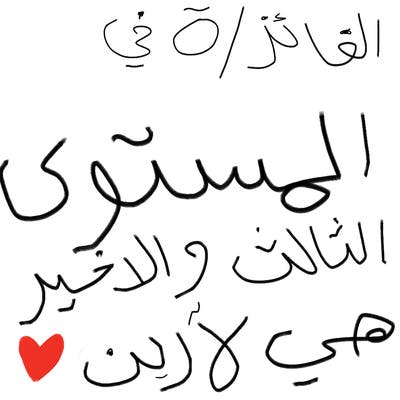 الفائز/ة في
المستوى
الثالث والاخير
هي لآرين